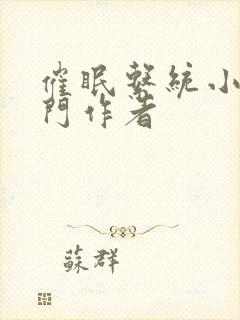 催眠繫統小
門作者
蘇群